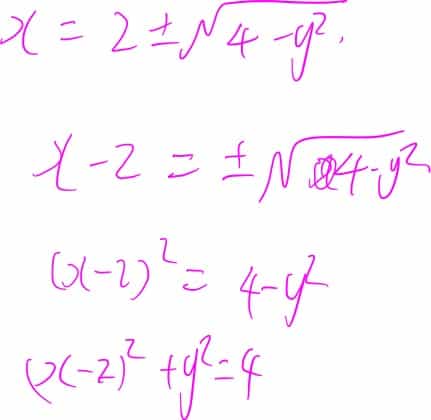 x = 2 ± √(4 - y²).
x - 2 = ± √(4 - y²)
(x - 2)² = 4 - y²
(x - 2)² + y² = 4